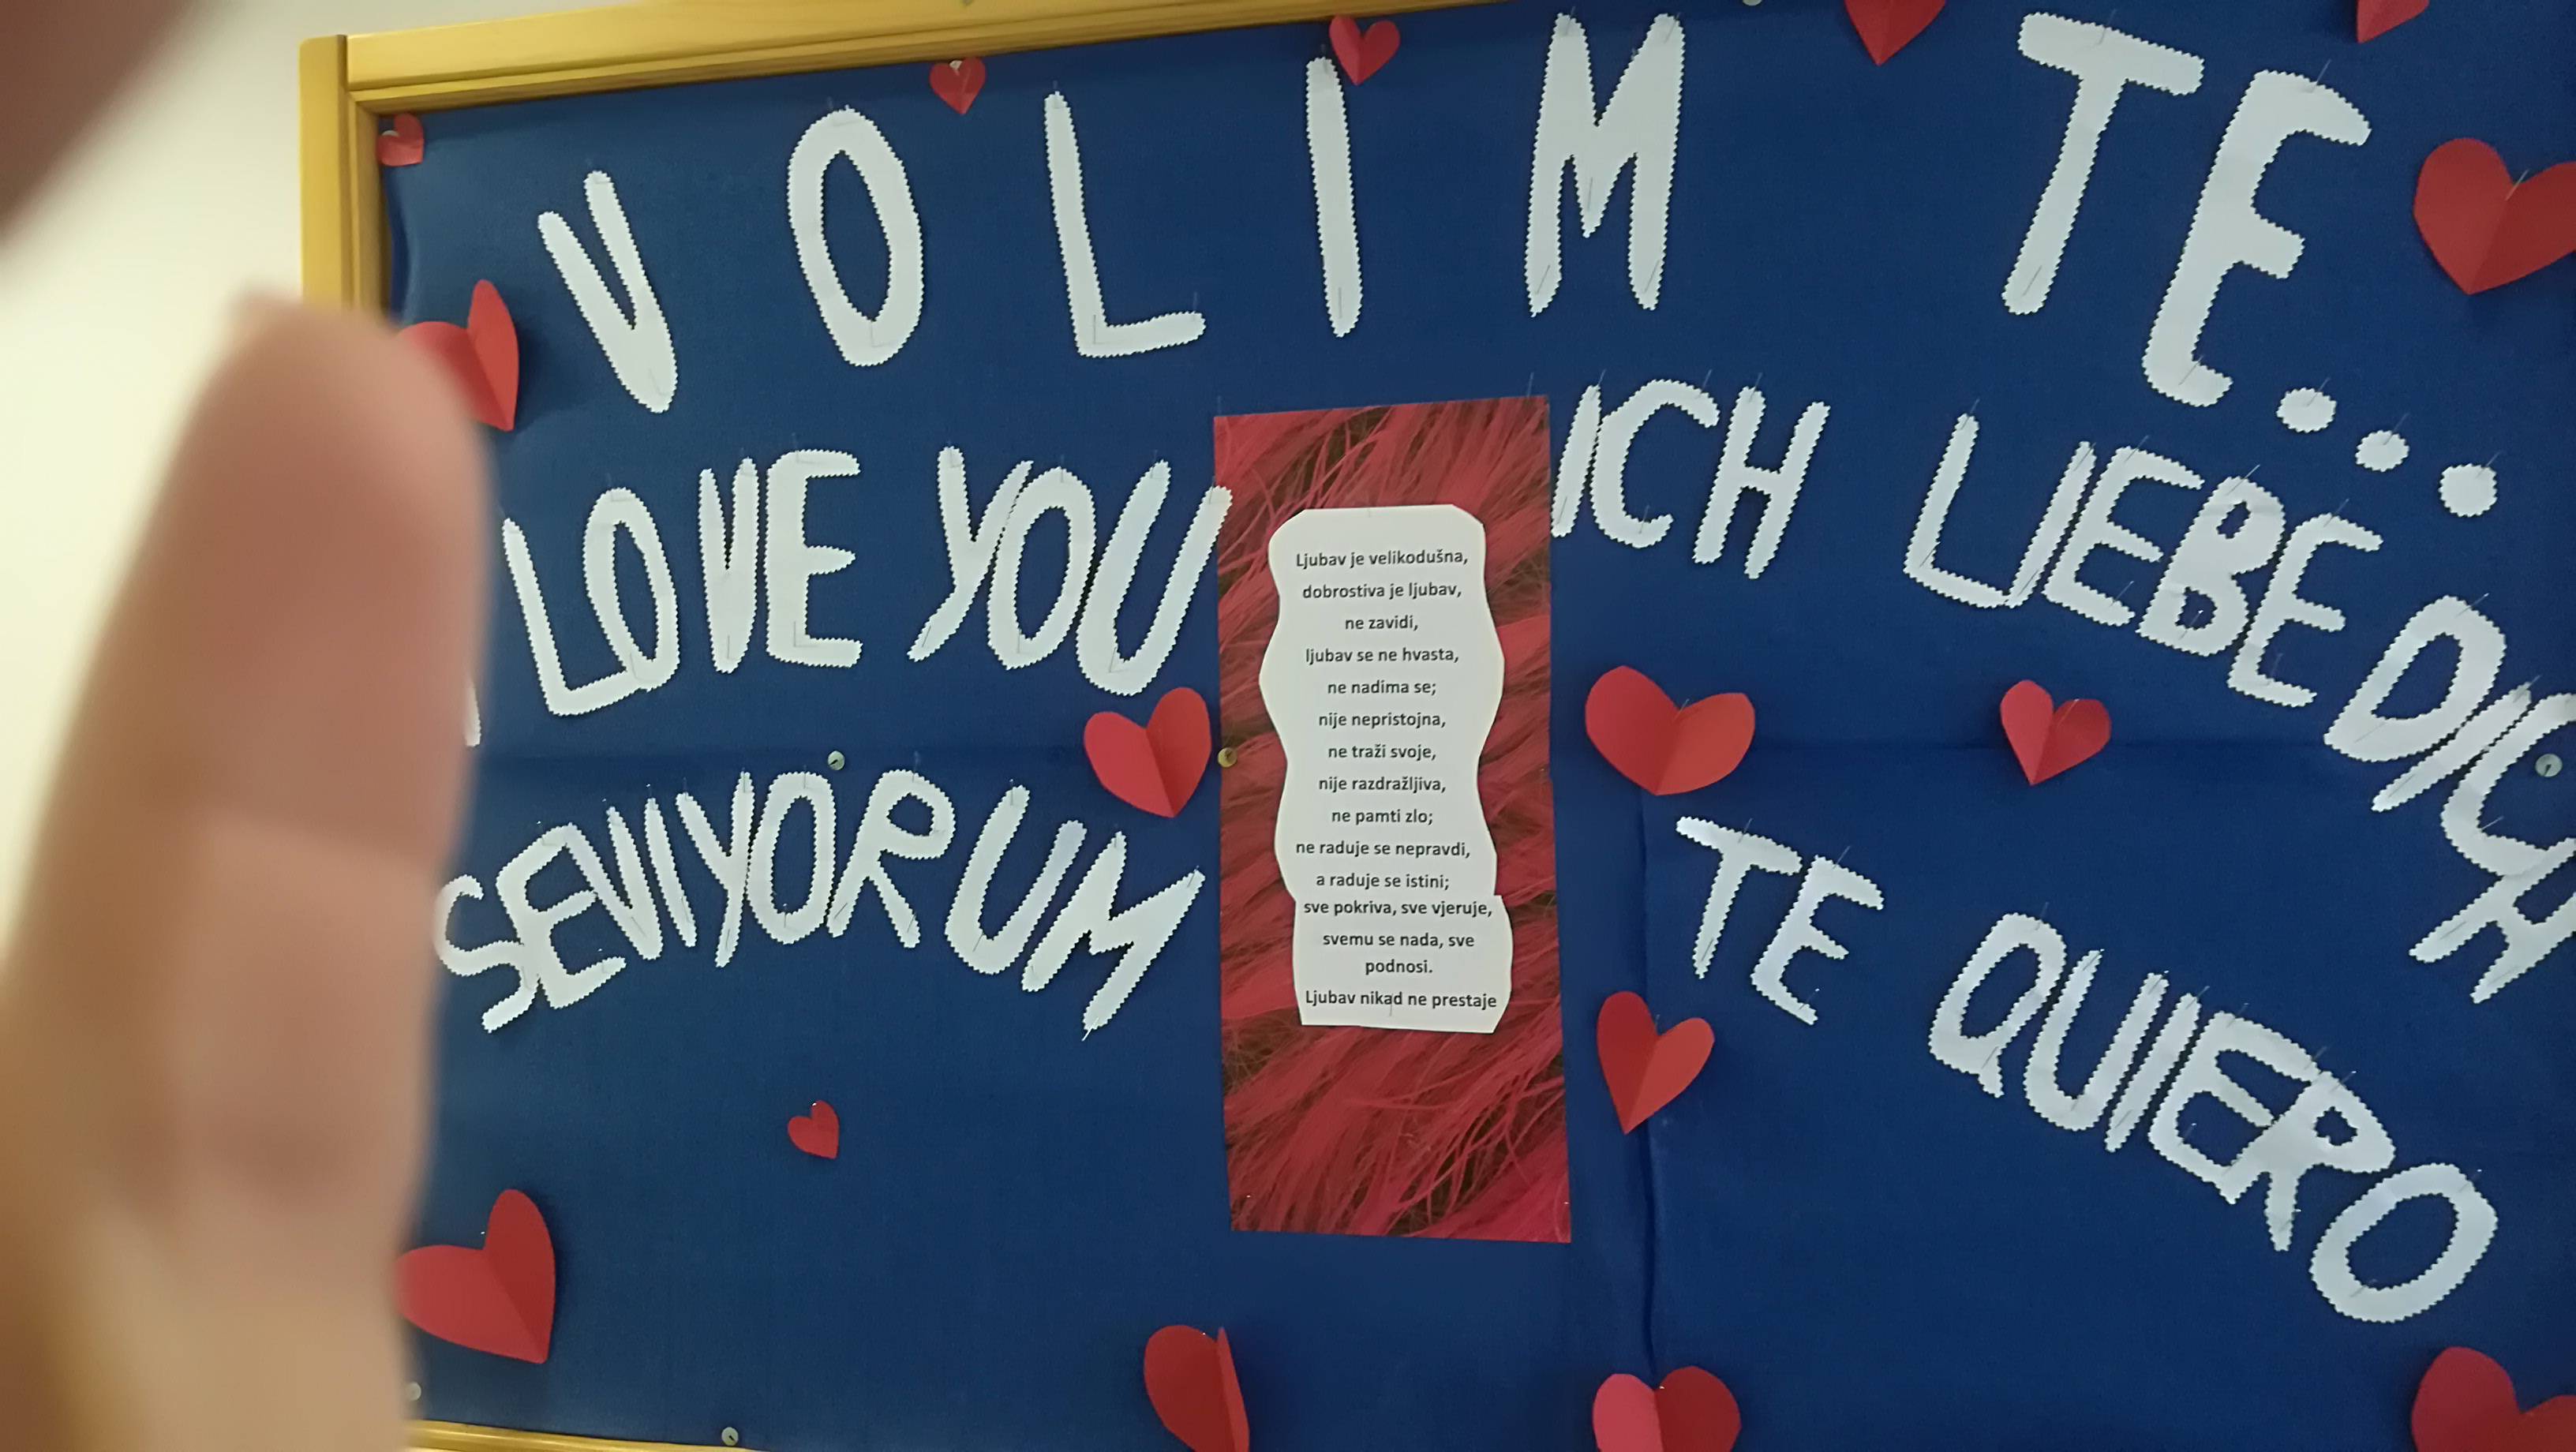 VOLIM TE...
LOVE YOU
ICH LIEBE DICH
SEVIYORUM
TE QUIERO
Ljubav je velikodušna,
dobrostiva je ljubav,
ne zavidi,
ljubav se ne hvasta,
ne nadima se;
nije nepristojna,
ne traži svoje,
nije razdražljiva,
ne pamti zlo;
ne raduje se nepravdi,
a raduje se istini;
sve pokriva, sve vjeruje,
svemu se nada, sve
podnosi.
Ljubav nikad ne prestaje